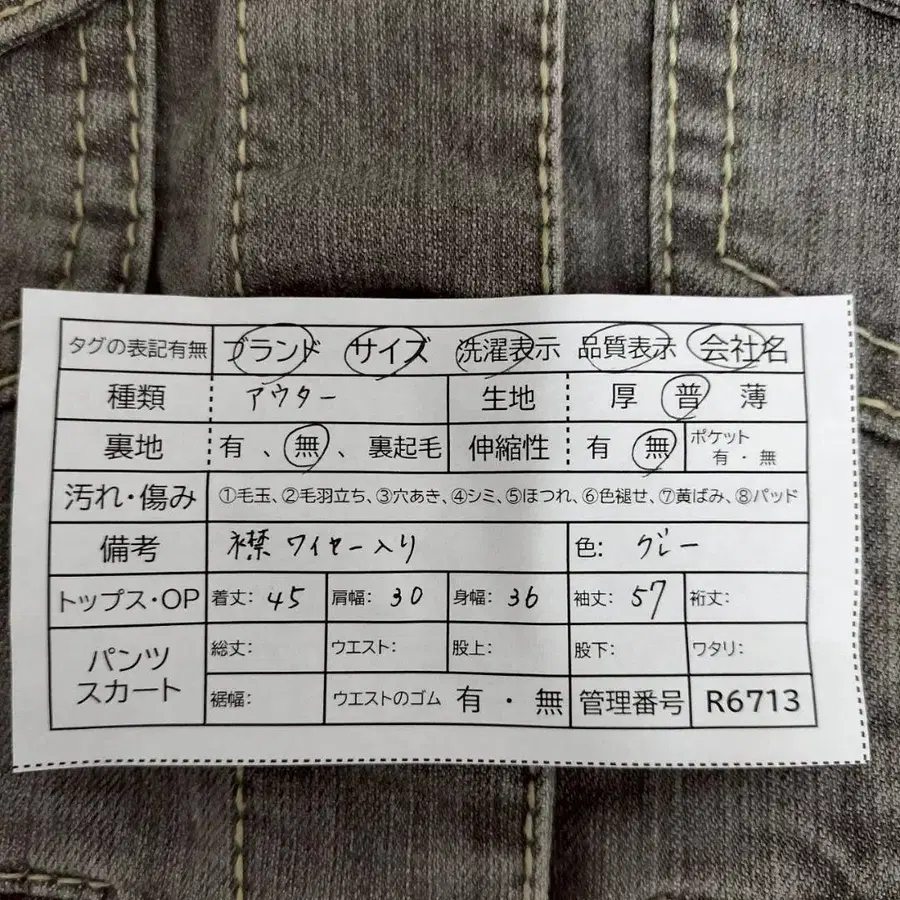 タグの表記有無 ブランド サイズ 洗濯表示 品質表示 会社名
種類 アウター 生地 厚 普 薄
裏地 有、無、裏起毛 伸縮性 有 無 ポケット 有・無
汚れ・傷み ①毛玉、②毛羽立ち、③穴あき、④シミ、⑤ほつれ、⑥色褪せ、⑦黄ばみ、⑧パッド
備考 襟ワイヤー入り 色: グレー
トップス・OP 着丈: 45 肩幅: 30 身幅: 36 袖丈: 57 裄丈:
パンツ スカート 総丈: ウエスト: 股上: 股下: ワタリ:
裾幅: ウエストのゴム 有・無 管理番号 R6713